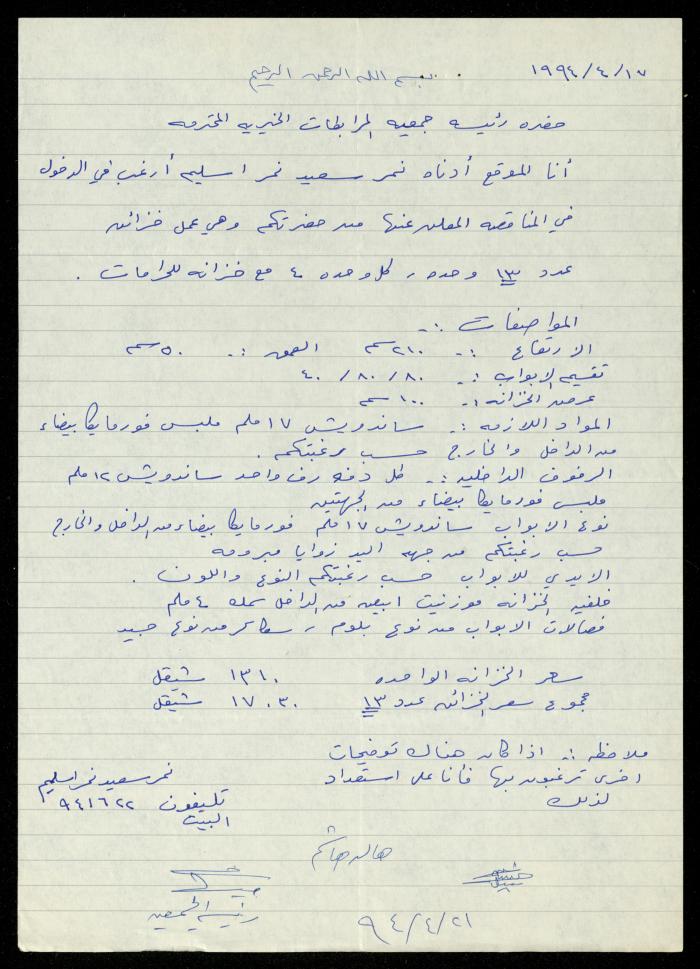 بسم الله الرحمن الرحيم ١٩٩٤/٤/١٧
حضره رئيسه جمعيه المرابطات الخيريه المحترمه
أنا الموقع أدناه نمر سعيد نمر اسليم أرغب في الدخول
في المناقصه المعلن عنها من حضرتكم وهي عمل خزائن
عدد ١٣ وحده ، كل وحده ٤ مع خزانه للحرامات .
المواصفات :-
الارتفاع :- ٢١٠ سم العمق :- ٥٠ سم
تقسيم الابواب :- ٨٠/ ٨٠/ ٤٠
عرض الخزانه :- ١٠٠ سم
المواد اللازمه :- ساندويش ١٧ ملم ملبس فورمايكا بيضاء
من الداخل والخارج حسب رغبتكم .
الرفوف الداخليه :- كل دفه رف واحد ساندويش ١٢ ملم
ملبس فورمايكا بيضاء من الجهتين
نوع الابواب ساندويش ١٧ ملم فورمايكا بيضاء من الداخل والخارج
حسب رغبتكم من جهه اليد زوايا مبرومه
الايدي للابواب حسب رغبتكم النوع واللون .
خلفيه الخزانه فوزنيت ابيض من الداخل سمك ٤ ملم
فصالات الابواب من نوع بلوم ، من نوع جيد
سعر الخزانه الواحده ١٣١٠ شيقل
مجموع سعر الخزائن عدد ١٣ ١٧٠٣٠ شيقل
ملاحظه :- اذا كان هناك توضيحات
اخرى ترغبون بها فانا على استعداد
لذلك
نمر سعيد نمر اسليم
تليفون ٩٤١٦٢٢
البيت
رئيسة الجمعيه
٩٤/٤/٢١